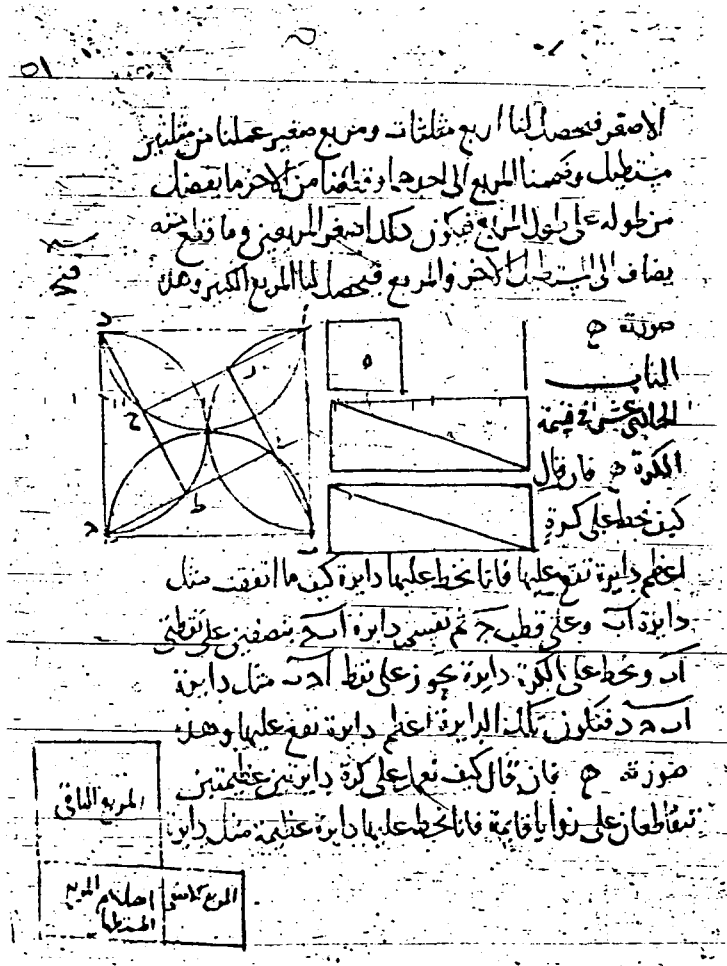 الاصغر فيحصل لنا اربع مثلثات ومربع صغير عملنا من مثلثين
مستطيل وقسمنا المربع الى احدهما وقطعنا من الاخر ما يفضل
من طوله على طول المربع فيكون ذلك اصغر المربعين وما قطع منه
يضاف الى المستطيل الاخر والمربع فيحصل لنا المربع الكبير وهذه
صورته
الباب
الحادي عشر في قسمة
الكرة فان قال
كيف نخط على كرة
اعظم دايرة تقع عليها فانا نخط عليها دايرة كيف ما اتفقت مثل
دايرة اب وعلى قطب ج ثم نقسم دايرة اب بنصفين على نقطتي
اب ونخط على الكرة دايرة تجوز على نقط اجب مثل دايرة
اب ج د فتكون تلك الدايرة اعظم دايرة تقع عليها وهذه
صورته فان قال كيف نعمل على كرة دايرتين عظيمتين
تتقاطعان على زوايا قايمة فانا نخط عليها دايرة عظيمة مثل دايرة
المربع الثاني
اضلاع المربع